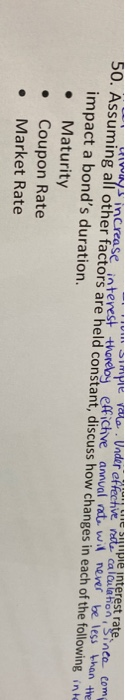 simple interest rate.
simple rate. Under effective rate calculation, Since com
always increase interest thereby effictive annual rate will never be less than the
50. Assuming all other factors are held constant, discuss how changes in each of the following
impact a bond's duration.
• Maturity
• Coupon Rate
• Market Rate